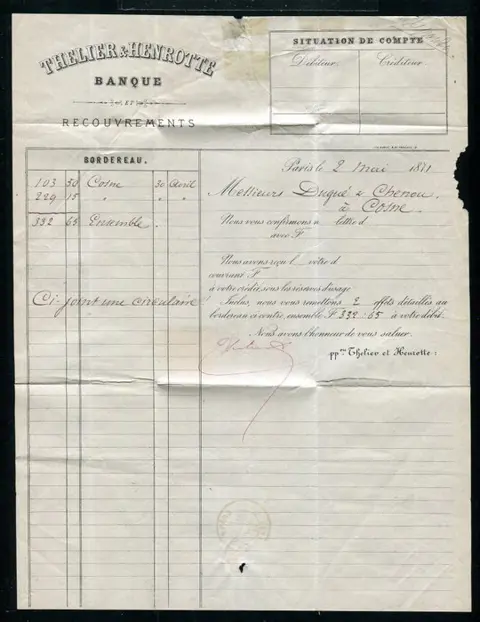 THELIER & HENROTTE
BANQUE
ET
RECOUVREMENTS
SITUATION DE COMPTE
Débiteur. Créditeur.
BORDEREAU.
103 50 Cosne 30 Avril
229 15 " " "
332 65 Ensemble.
Ci joint une circulaire
Paris le 2 mai 1871
Messieurs Duqué & Chenou.
à Cosne.
Nous vous confirmons n lettre d
avec F
Nous avons reçu l votre d
courant F
à votre crédit, sous les réserves d'usage.
Inclus, nous vous remettons 2 effets détaillés au
bordereau ci contre, ensemble F 332.65 à votre débit.
Nous avons l'honneur de vous saluer.
ppon Thelier et Henrotte: